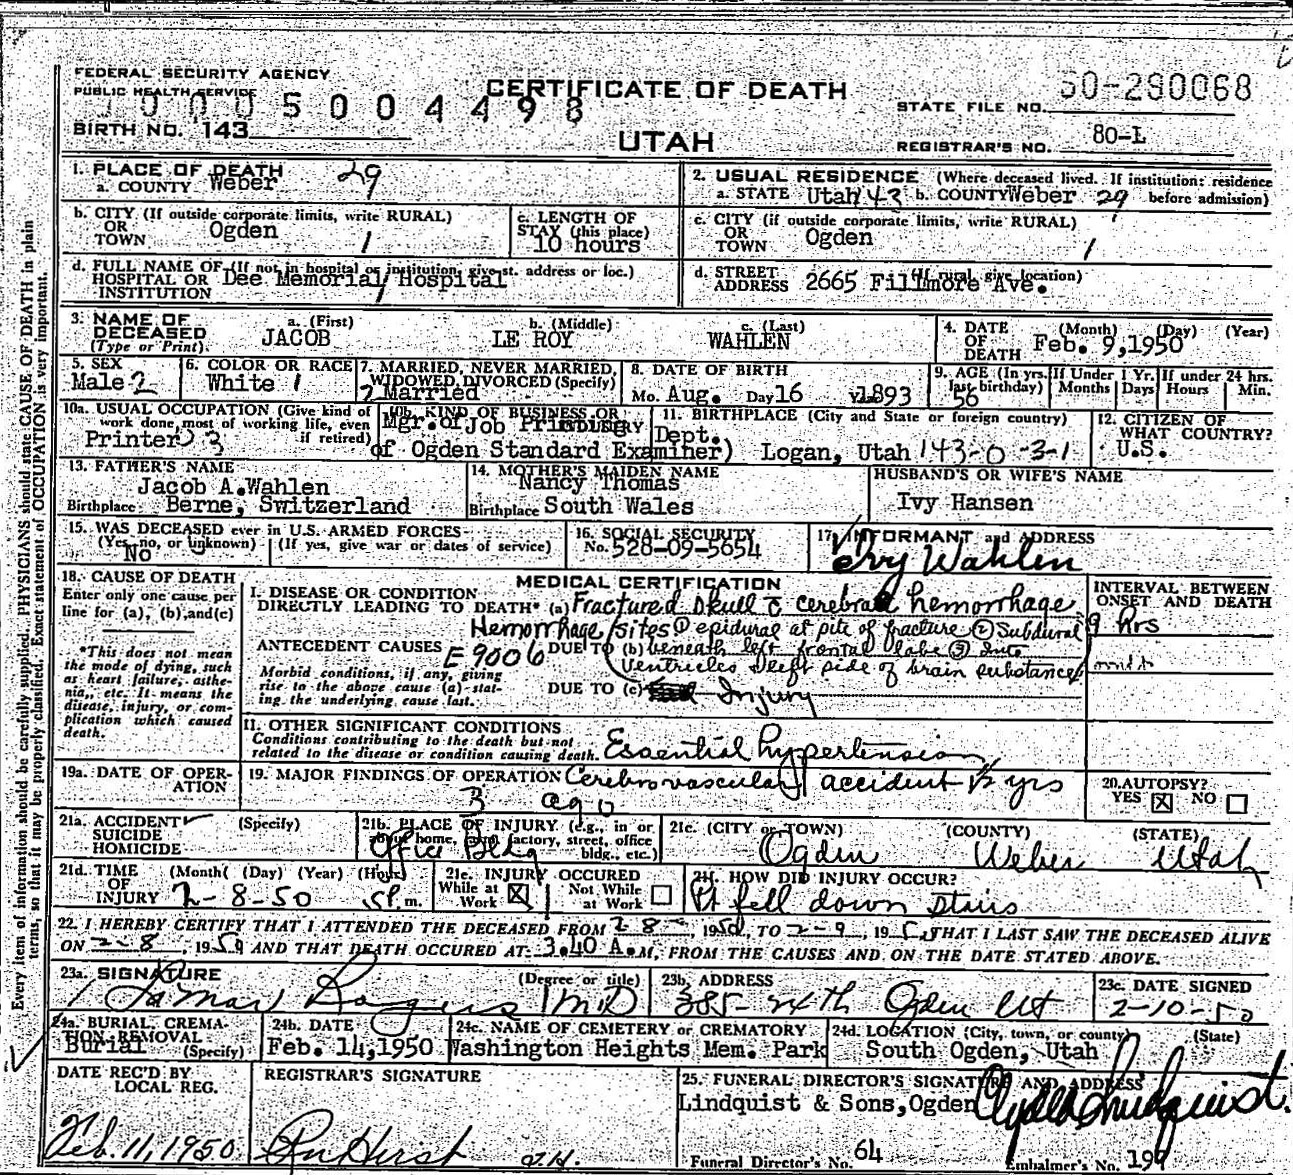 FEDERAL SECURITY AGENCY
PUBLIC HEALTH SERVICE
5004498
BIRTH NO. 143
CERTIFICATE OF DEATH
UTAH
STATE FILE NO. 50-290068
REGISTRAR'S NO. 80-L
1. PLACE OF DEATH 29
a. COUNTY Weber
2. USUAL RESIDENCE (Where deceased lived. If institution: residence before admission)
a. STATE Utah 43 b. COUNTY Weber 29
b. CITY (If outside corporate limits, write RURAL)
OR TOWN Ogden 1
c. LENGTH OF STAY (this place)
10 hours
c. CITY (if outside corporate limits, write RURAL)
OR TOWN Ogden 1
d. FULL NAME OF (If not in hospital or institution, give st. address or loc.)
HOSPITAL OR INSTITUTION Dee Memorial Hospital
d. STREET ADDRESS (If rural, give location)
2665 Fillmore Ave.
3. NAME OF DECEASED (Type or Print)
a. (First) JACOB
b. (Middle) LE ROY
c. (Last) WAHLEN
4. DATE OF DEATH (Month) (Day) (Year)
Feb. 9,1950
5. SEX
Male 2
6. COLOR OR RACE
White 1
7. MARRIED, NEVER MARRIED, WIDOWED, DIVORCED (Specify)
2 Married
8. DATE OF BIRTH
Mo. Aug. Day 16 Yr. 1893
9. AGE (In yrs. last birthday) 56
If Under 1 Yr. Months Days
If under 24 hrs. Hours Min.
10a. USUAL OCCUPATION (Give kind of work done, most of working life, even if retired)
Printer 3
10b. KIND OF BUSINESS OR INDUSTRY
Mgr. of Job Printing Dept.
of Ogden Standard Examiner)
11. BIRTHPLACE (City and State or foreign country)
Logan, Utah 143-0-3-1
12. CITIZEN OF WHAT COUNTRY?
U.S.
13. FATHER'S NAME
Jacob A.Wahlen
Birthplace Berne, Switzerland
14. MOTHER'S MAIDEN NAME
Nancy Thomas
Birthplace South Wales
HUSBAND'S OR WIFE'S NAME
Ivy Hansen
15. WAS DECEASED ever in U.S. ARMED FORCES
(Yes, no, or unknown) (If yes, give war or dates of service)
No
16. SOCIAL SECURITY
No. 528-09-5654
17. INFORMANT and ADDRESS
Ivy Wahlen
18. CAUSE OF DEATH
Enter only one cause per line for (a), (b), and (c)
*This does not mean the mode of dying, such as heart failure, asthenia, etc. It means the disease, injury, or complication which caused death.
MEDICAL CERTIFICATION
INTERVAL BETWEEN ONSET AND DEATH
I. DISEASE OR CONDITION
DIRECTLY LEADING TO DEATH* (a) Fractured skull c̄ cerebral hemorrhage
9 hrs
Hemorrhage sites ① epidural at site of fracture ② Subdural
ANTECEDENT CAUSES E9006 DUE TO (b) beneath left frontal lobe ③ Into
ventricles & left side of brain substance
Morbid conditions, if any, giving rise to the above cause (a) stating the underlying cause last.
DUE TO (c) Injury
II. OTHER SIGNIFICANT CONDITIONS
Conditions contributing to the death but not related to the disease or condition causing death. Essential hypertension
19a. DATE OF OPERATION
19. MAJOR FINDINGS OF OPERATION Cerebrovascular accident 1½ yrs
3 ago
20. AUTOPSY?
YES [X] NO [ ]
21a. ACCIDENT ✓ (Specify)
SUICIDE
HOMICIDE
21b. PLACE OF INJURY (e.g., in or about home, farm, factory, street, office bldg., etc.)
Office Bldg
21c. (CITY or TOWN) (COUNTY) (STATE)
Ogden Weber Utah
21d. TIME OF INJURY (Month) (Day) (Year) (Hour)
2-8-50 5P.m.
21e. INJURY OCCURED
While at Work [X] Not While at Work [ ]
21f. HOW DID INJURY OCCUR?
Pt fell down stairs
22. I HEREBY CERTIFY THAT I ATTENDED THE DECEASED FROM 2-8-, 1950, TO 2-9, 195, THAT I LAST SAW THE DECEASED ALIVE
ON 2-8, 1950 AND THAT DEATH OCCURED AT 3.40 A.M, FROM THE CAUSES AND ON THE DATE STATED ABOVE.
23a. SIGNATURE (Degree or title)
LaMar Rogers MD
23b. ADDRESS
385-24th Ogden Ut
23c. DATE SIGNED
2-10-50
24a. BURIAL, CREMATION, REMOVAL (Specify)
Burial
24b. DATE
Feb. 14,1950
24c. NAME OF CEMETERY or CREMATORY
Washington Heights Mem. Park
24d. LOCATION (City, town, or county) (State)
South Ogden, Utah
DATE REC'D BY LOCAL REG.
Feb. 11, 1950
REGISTRAR'S SIGNATURE
25. FUNERAL DIRECTOR'S SIGNATURE AND ADDRESS
Lindquist & Sons, Ogden Clyde Lindquist
Funeral Director's No. 64
Embalmer's No. 199
Every item of information should be carefully supplied, PHYSICIANS should state CAUSE OF DEATH in plain
terms, so that it may be properly classified. Exact statement of OCCUPATION is very important.